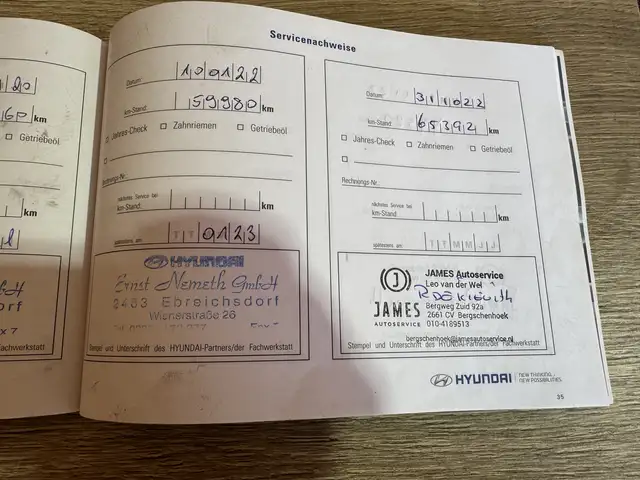 Servicenachweise
km
Getriebeöl
km
Datum: 100122
km-Stand: 59980 km
Jahres-Check Zahnriemen Getriebeöl
Rechnungs-Nr.:
nächstes Service bei:
km-Stand: km
spätestens am: TT0123
HYUNDAI
Ernst Nemeth GmbH
2483 Ebreichsdorf
Wienerstraße 26
Stempel und Unterschrift des HYUNDAI-Partners/der Fachwerkstatt
Datum: 311022
km-Stand: 65392 km
Jahres-Check Zahnriemen Getriebeöl
Rechnungs-Nr.:
nächstes Service bei:
km-Stand: km
spätestens am: TTMMJJ
J
JAMES
AUTOSERVICE
JAMES Autoservice
Leo van der Wel
Bergweg Zuid 92a
2661 CV Bergschenhoek
010-4189513
bergschenhoek@jamesautoservice.nl
Stempel und Unterschrift des HYUNDAI-Partners/der Fachwerkstatt
HYUNDAI NEW THINKING.
NEW POSSIBILITIES.
35